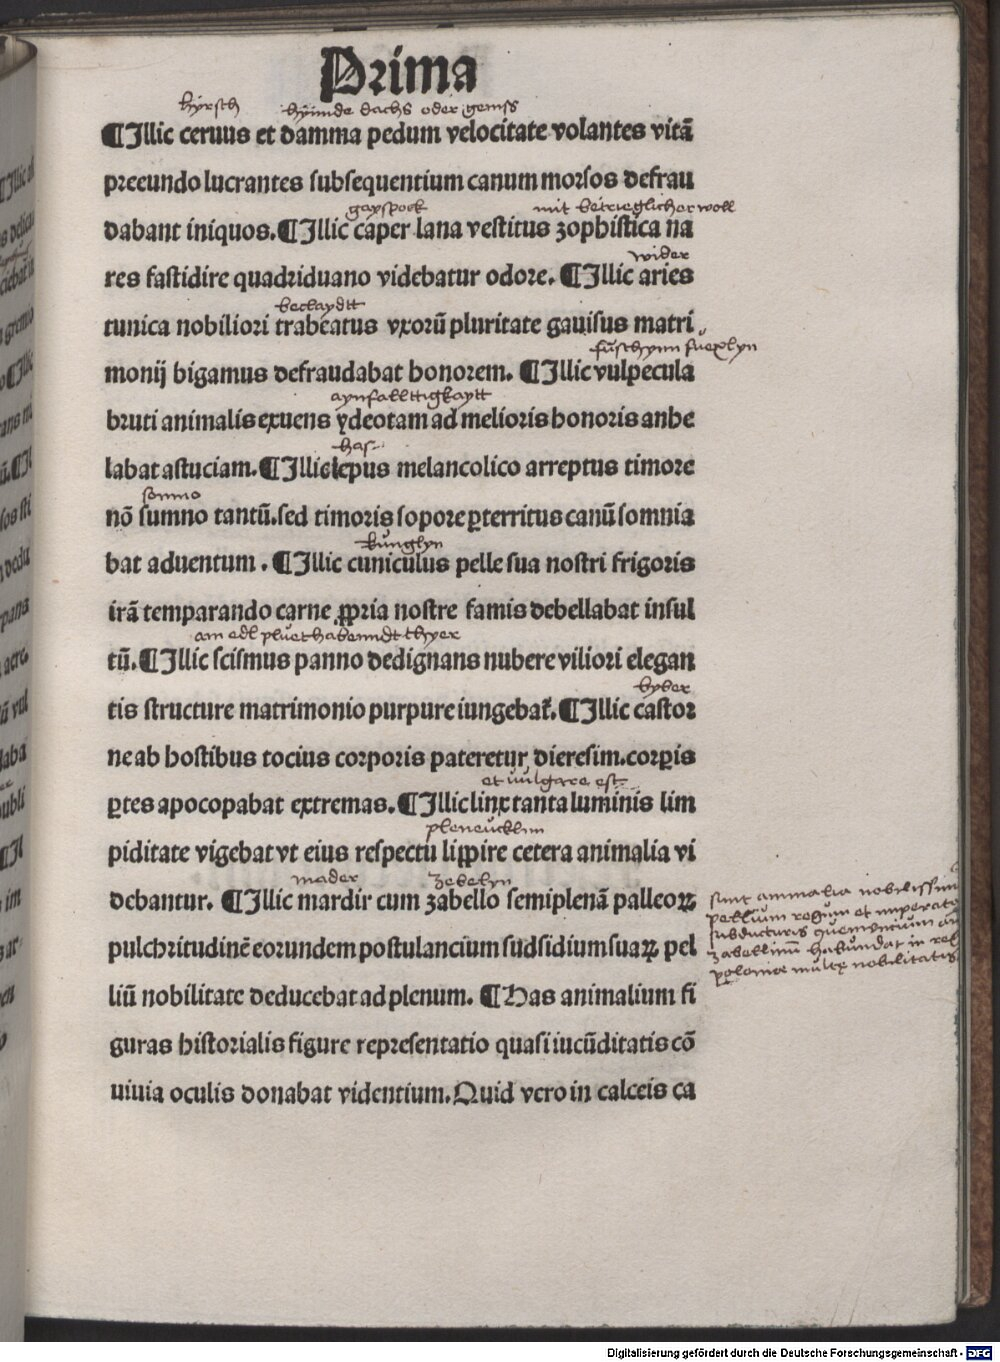 Prima
hyrsch hyimde dachs oder gemss
¶Illic ceruus et damma pedum velocitate volantes vitā
preeundo lucrantes subsequentium canum morsos defrau
gayspock mit betrieglicher woll
dabant iniquos. ¶Illic caper lana vestitus zophistica na
wider
res fastidire quadriduano videbatur odore. ¶Illic aries
beclaydtt
tunica nobiliori trabeatus vxorū pluritate gauisus matri
fuchslyn
monij bigamus defraudabat honorem. ¶Illic vulpecula
aynfalttigkaytt
bruti animalis exuens ydeotam ad melioris honoris anhe
has
labat astuciam. ¶Illic lepus melancolico arreptus timore
somno
nō sumno tantū. sed timoris sopore ꝑterritus canū somnia
kunglyn
bat aduentum. ¶Illic cuniculus pelle sua nostri frigoris
irā temperando carne ꝓpria nostre famis debellabat insul
am edl pluethabenndt thyer
tū. ¶Illic scismus panno dedignans nubere viliori elegan
byber
tis structure matrimonio purpure iungebat̄. ¶Illic castor
ne ab hostibus tocius corporis pateretur dieresim. corꝑis
et vulgare est
ꝑtes apocopabat extremas. ¶Illic linx tanta luminis lim
piditate vigebat vt eius respectu lippire cetera animalia vi
mader zebelyn
debantur. ¶Illic mardir cum zabello semiplenā palleoꝝ
pulchritudinē eorundem postulancium sudsidium suaꝝ pel
liū nobilitate deducebat ad plenum. ¶Has animalium fi
guras historialis figure representatio quasi iucūditatis cō
uiuia oculis donabat videntium. Quid vero in calceis ca
sunt animalia nobilissim
pellium regum et imperato
zabellinū habundat in re
polonie multe nobilitatis
Digitalisierung gefördert durch die Deutsche Forschungsgemeinschaft - DFG